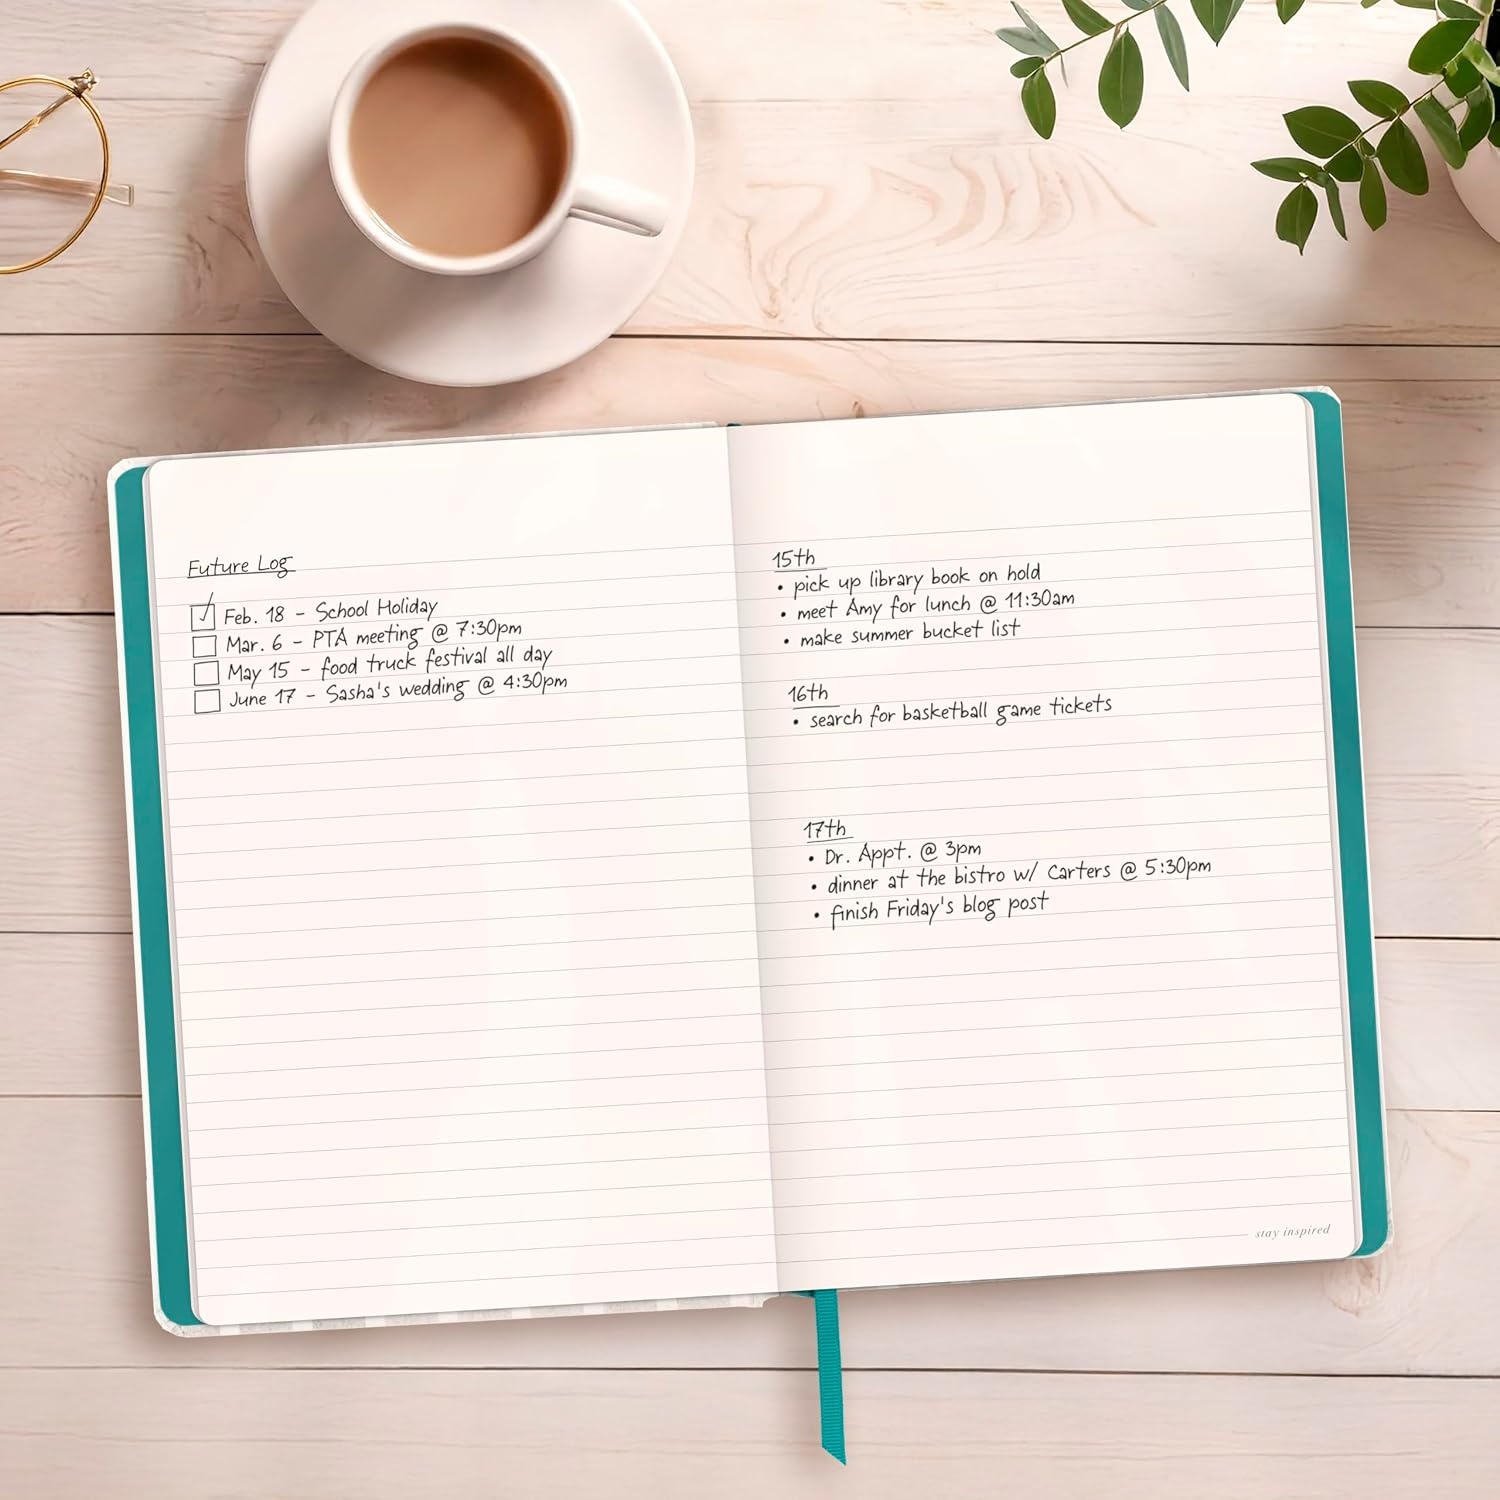 Future Log
Feb. 18 - School Holiday
Mar. 6 - PTA meeting @ 7:30pm
May 15 - food truck festival all day
June 17 - Sasha's wedding @ 4:30pm
15th
• pick up library book on hold
• meet Amy for lunch @ 11:30am
• make summer bucket list
16th
• search for basketball game tickets
17th
• Dr. Appt. @ 3pm
• dinner at the bistro w/ Carters @ 5:30pm
• finish Friday's blog post
stay inspired